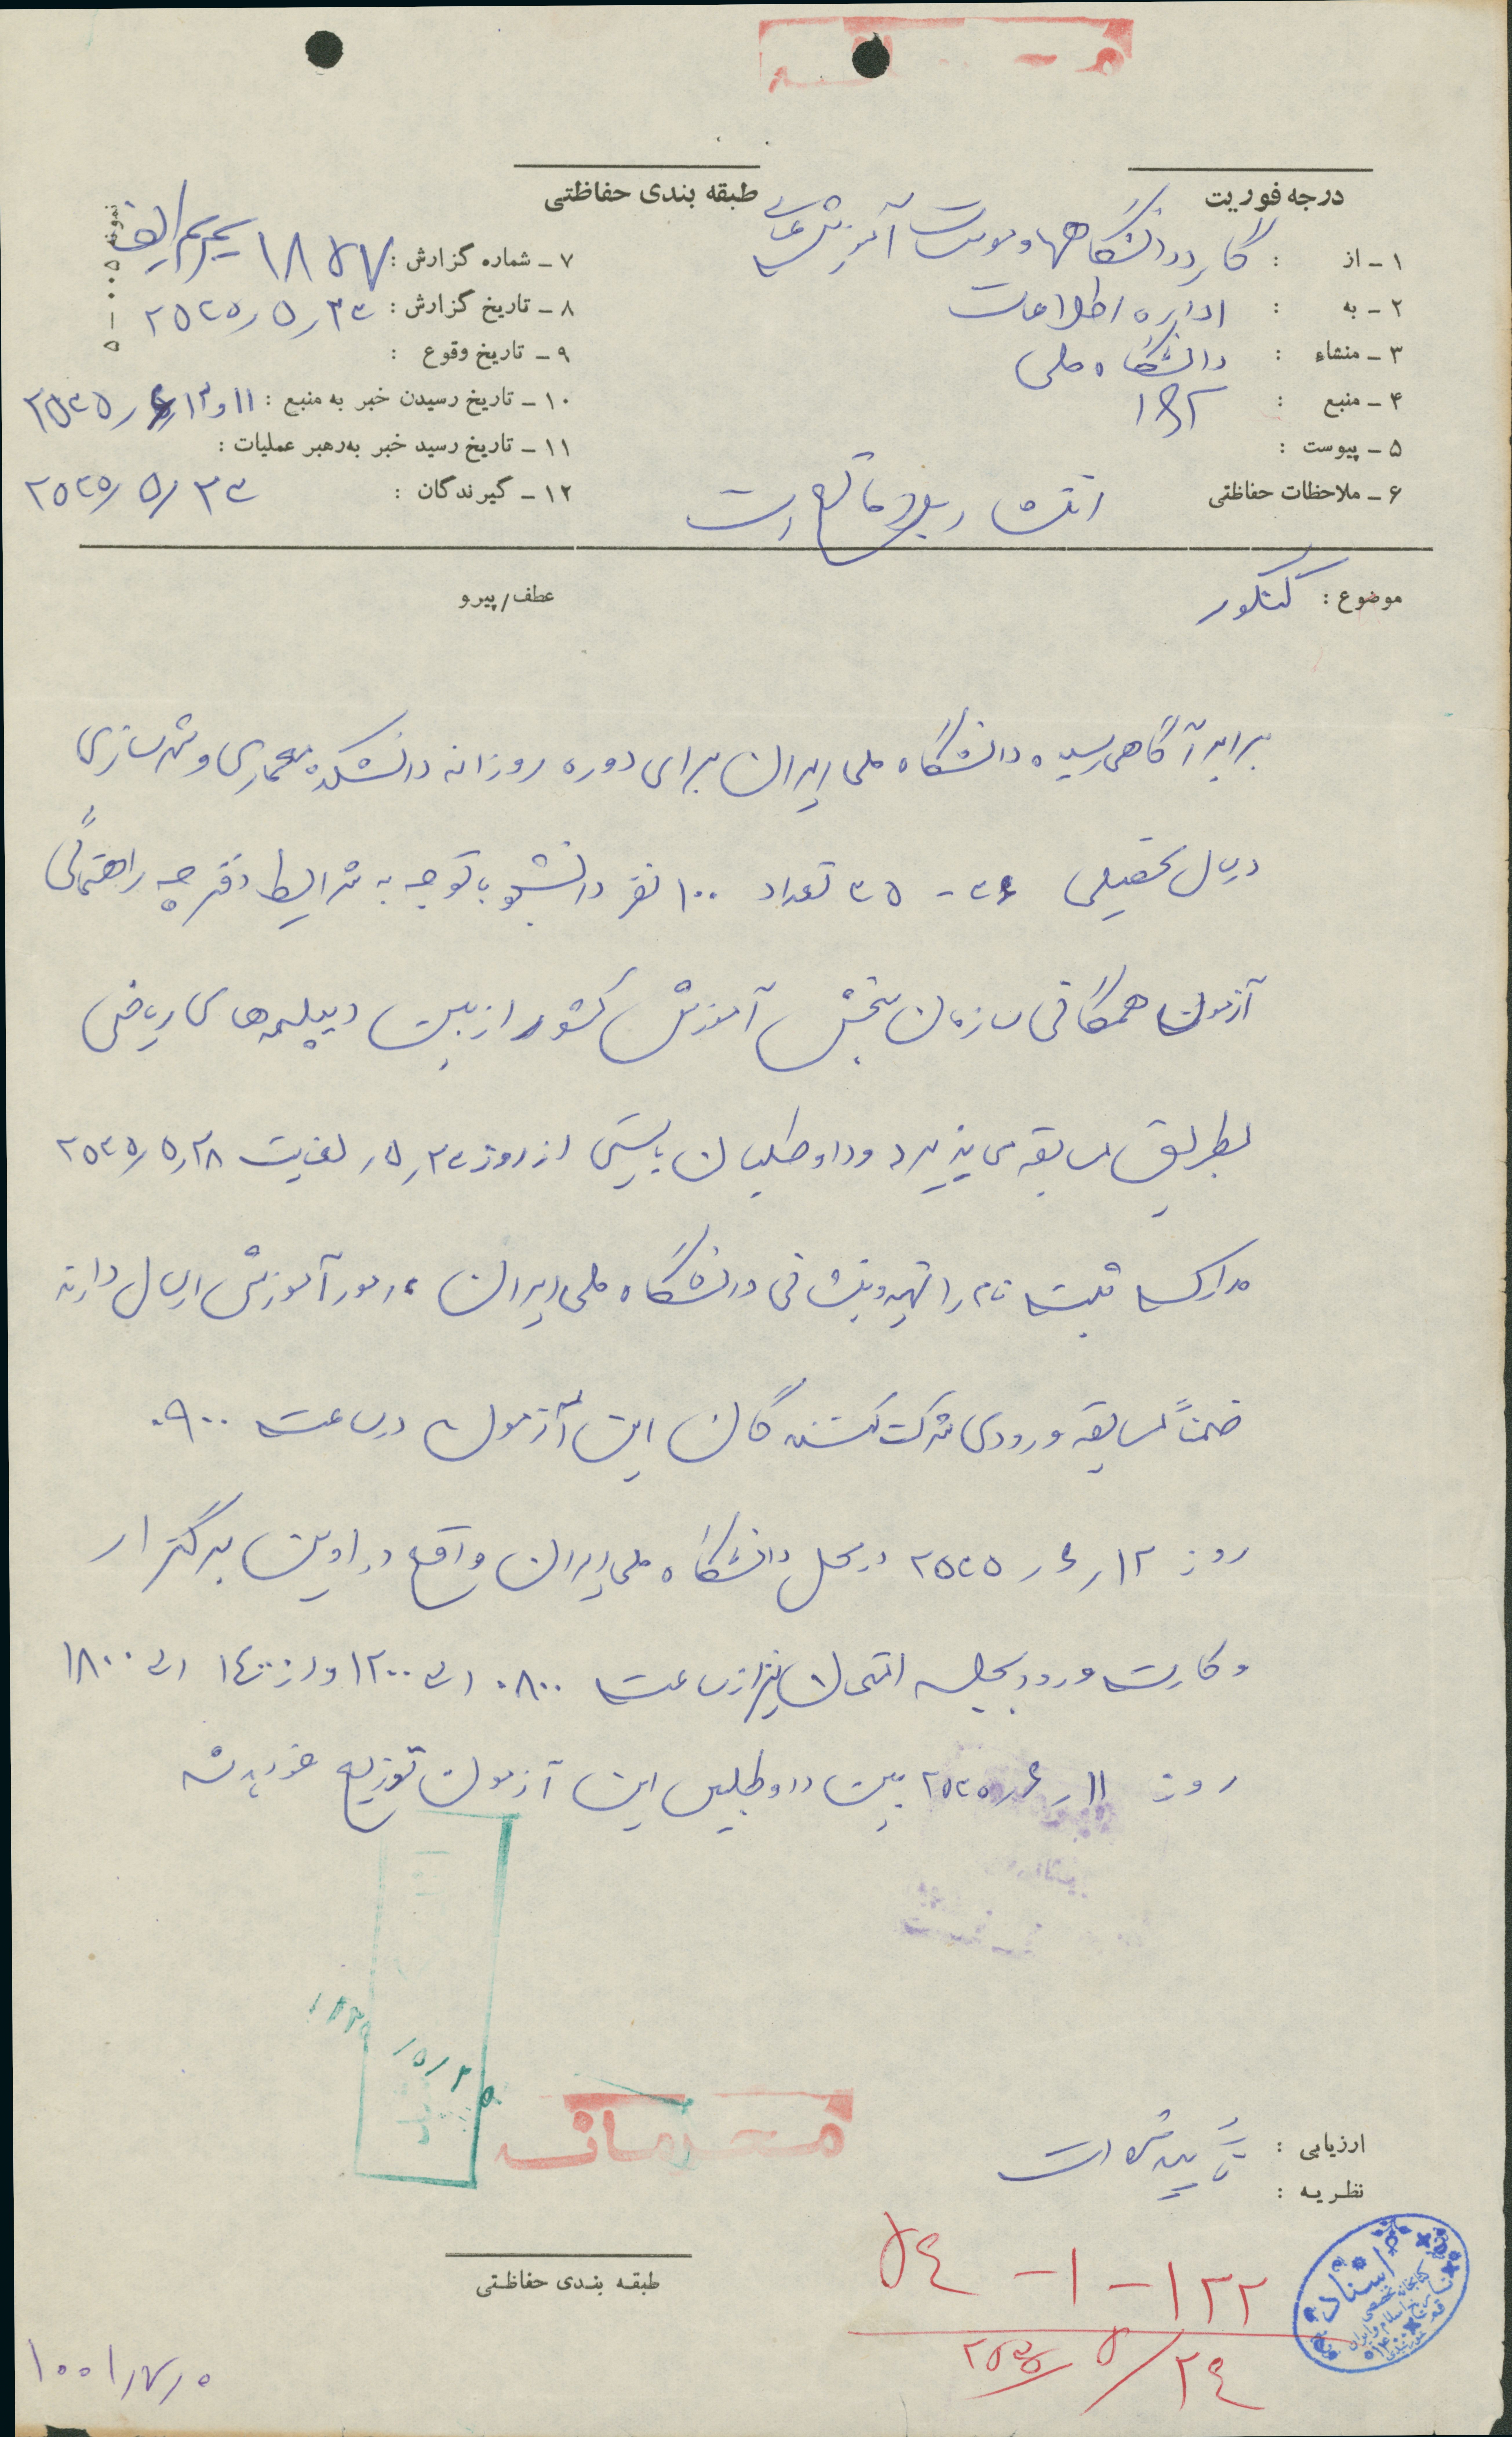 درجه فوریت
طبقه بندی حفاظتی
۱ - از : گارد دانشگاهها و موسسات آموزش عالی
۲ - به : اداره اطلاعات
۳ - منشاء : دانشگاه ملی
۴ - منبع : ۱۵۲
۵ - پیوست :
۶ - ملاحظات حفاظتی انتشار بلامانع است
۷ - شماره گزارش : ۱۸۷۷
۸ - تاریخ گزارش : ۲۵۳۵٫۵٫۲۳
۹ - تاریخ وقوع :
۱۰ - تاریخ رسیدن خبر به منبع :
۱۱ - تاریخ رسید خبر به رهبر عملیات :
۱۲ - گیرندگان : ۲۵۳۵/۵/۲۳
نمونه ۵۰۰۵ - ۵
موضوع : کنکور
عطف/پیرو
برابر آگاهی رسیده دانشگاه ملی ایران برای دوره روزانه دانشکده معماری و شهرسازی
در سال تحصیلی ۳۶ - ۳۵ تعداد ۱۰۰ نفر دانشجو با توجه به شرایط دفترچه راهنمائی
آزمون همگانی سازمان سنجش آموزش کشور از بین دیپلمه های ریاضی
بطریق مسابقه می پذیرد و داوطلبان بایستی از روز ۵٫۲۳ لغایت ۲۵۳۵٫۵٫۲۸
مدارک ثبت نام را تهیه و بنشانی دانشگاه ملی ایران ، امور آموزش ارسال دارند
ضمناً مسابقه ورودی شرکت کنندگان این آزمون در ساعت ۰۹۰۰
روز ۱۲٫۶٫۲۵۳۵ در محل دانشگاه ملی ایران واقع در اوین برگزار
و کارت ورود بجلسه امتحان نیز از ساعت ۰۸۰۰ الی ۱۲۰۰ و از ۱۴۰۰ الی ۱۸۰۰
روز ۱۱٫۶٫۲۵۳۵ بین داوطلبین این آزمون توزیع خواهد شد
محرمانه
ارزیابی : تأیید شده است
نظریه :
طبقه بندی حفاظتی
۱۲۲ - ۱ - ۵۴
۲۵۳۵/۵/۲۴
اسناد
کتابخانه تخصصی
تاریخ اسلام و ایران
قم